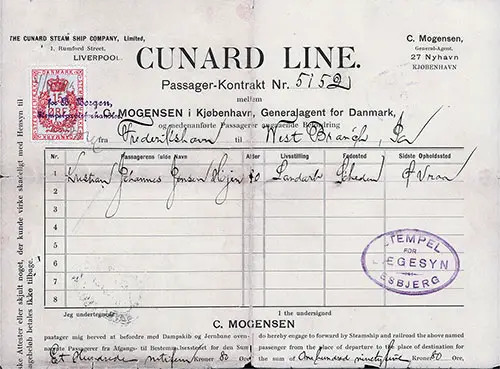 THE CUNARD STEAM SHIP COMPANY, Limited,
1, Rumford Street,
LIVERPOOL
C. Mogensen,
General-Agent.
27 Nyhavn
KJØBENHAVN
CUNARD LINE.
Passager-Kontrakt Nr. 5152
mellem
DANMARK
15
ØRE
C. MOGENSEN i Kjøbenhavn, Generalagent for Danmark,
og medenførte Passagerer angaaende Befordring
fra Frederikshavn til West Branch,
Nr. Passagerens fulde Navn Alder Livsstilling Fødested Sidste Opholdssted
1 Kristian Johannes Jensen
2
3
4
5
6
7
8
STEMPEL
FOR
LÆGESYN
ESBJERG
Jeg undertegnede I the undersigned
C. MOGENSEN
paatager mig herved at befordre med Dampskib og Jernbane oven-
do hereby engage to forward by Steamship and railroad the above named
nævnte Passagerer fra Afgangs- til Bestemmelsesstedet for den Sum
passenger from the place of departure to the place of destination for
Et Hundrede nitifem Kroner 80 Øre,
the sum of One hundred ninetyfive Kroner 80 Ore,
ske Attester eller skjult noget, der kunde virke skadeligt med Hensyn til
ngebeløb betales ikke tilbage.